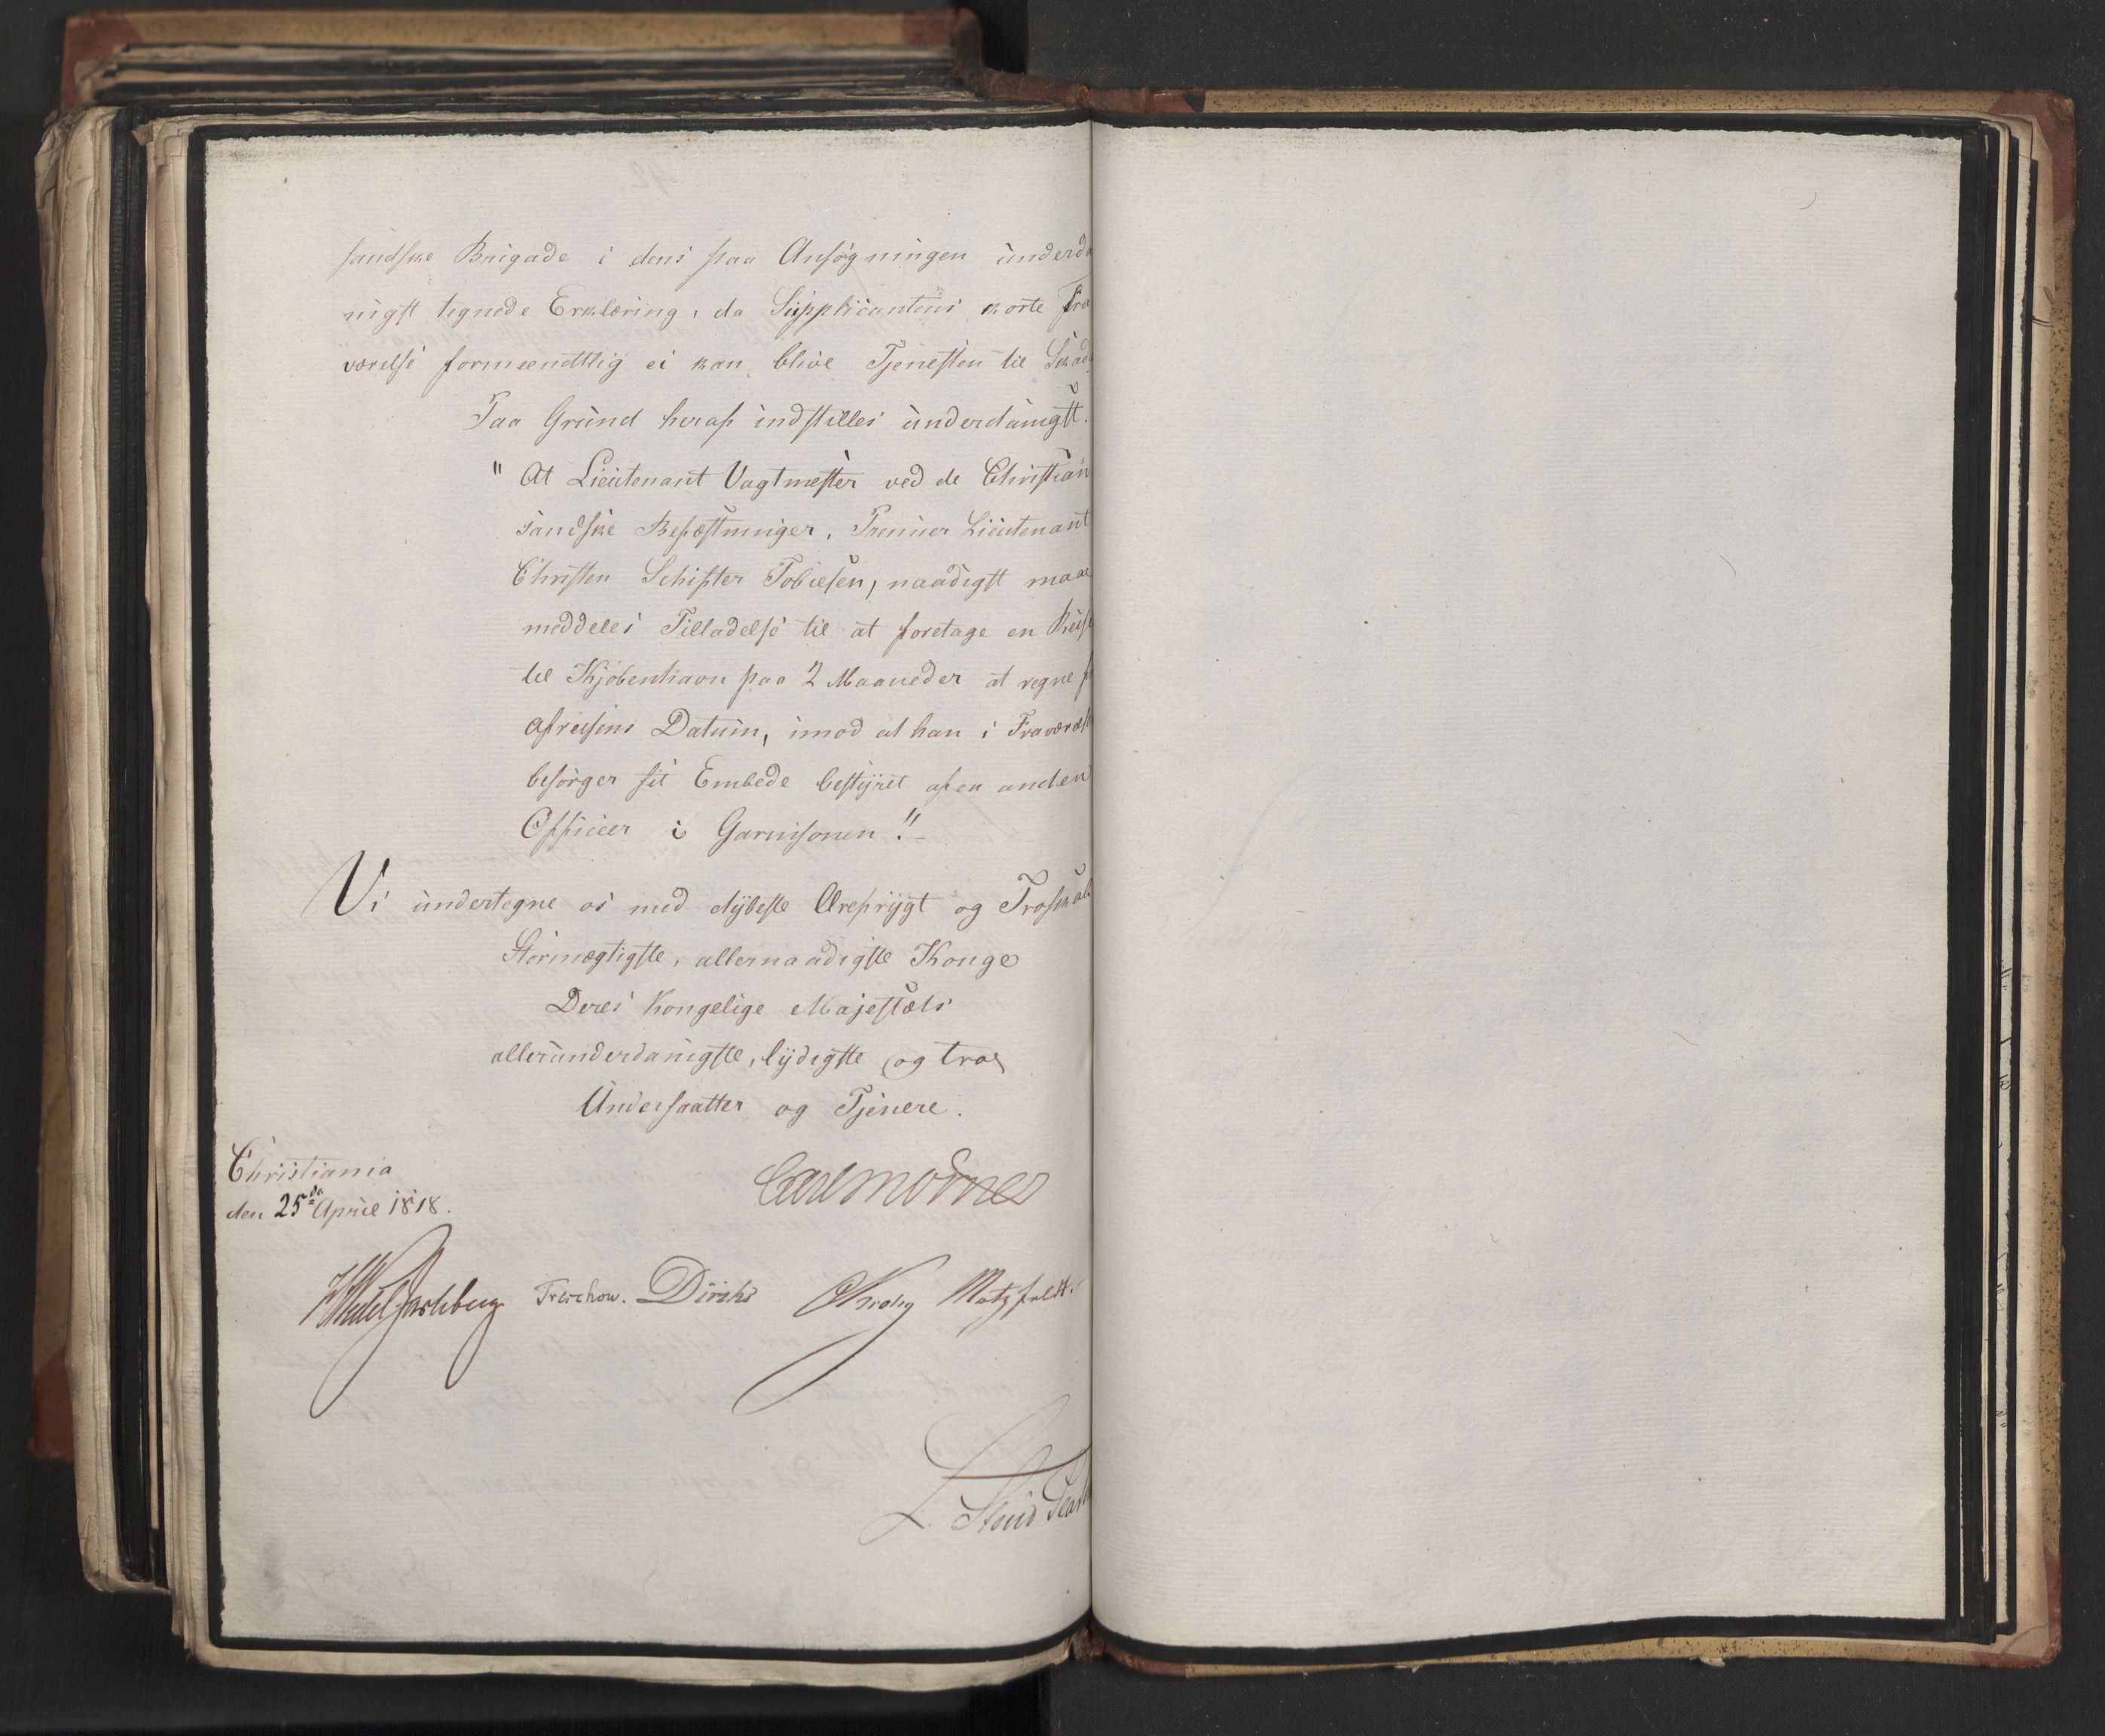 sandske Brigade i dens paa Ansøgningen underda
nigst tegnede Erklæring, da Supplicantens korte Fra
værelse formeendtlig ei kan blive Tjenesten til Skad
Paa Grund heraf indstilles underdanigst.
" At Lieutenant Vagtmester ved de Christian
sandske Befæstninger, Premier Lieutenant
Christen Schifter Tobiesen, naadigst maae
meddeles Tilladelse til at foretage en Reise
til Kjøbenhavn paa 2 Maaneder at regne f
Afreisens Datum, imod at han i Fraværels
besørger sit Embede bestyret af en anden
Officier i Garnisonen !"
Vi undertegne os med dybeste Ærefrygt og Troskab
Stormægtigste, allernaadigste Konge
Deres Kongelige Majestæts
allerunderdanigste, lydigste og troe
Undersaatter og Tjenere.
Christiania
den 25de April 1818.
Carl Mörner
HWedel Jarlsberg Treschow. Diriks CKrohg Motzfeldt.
L.